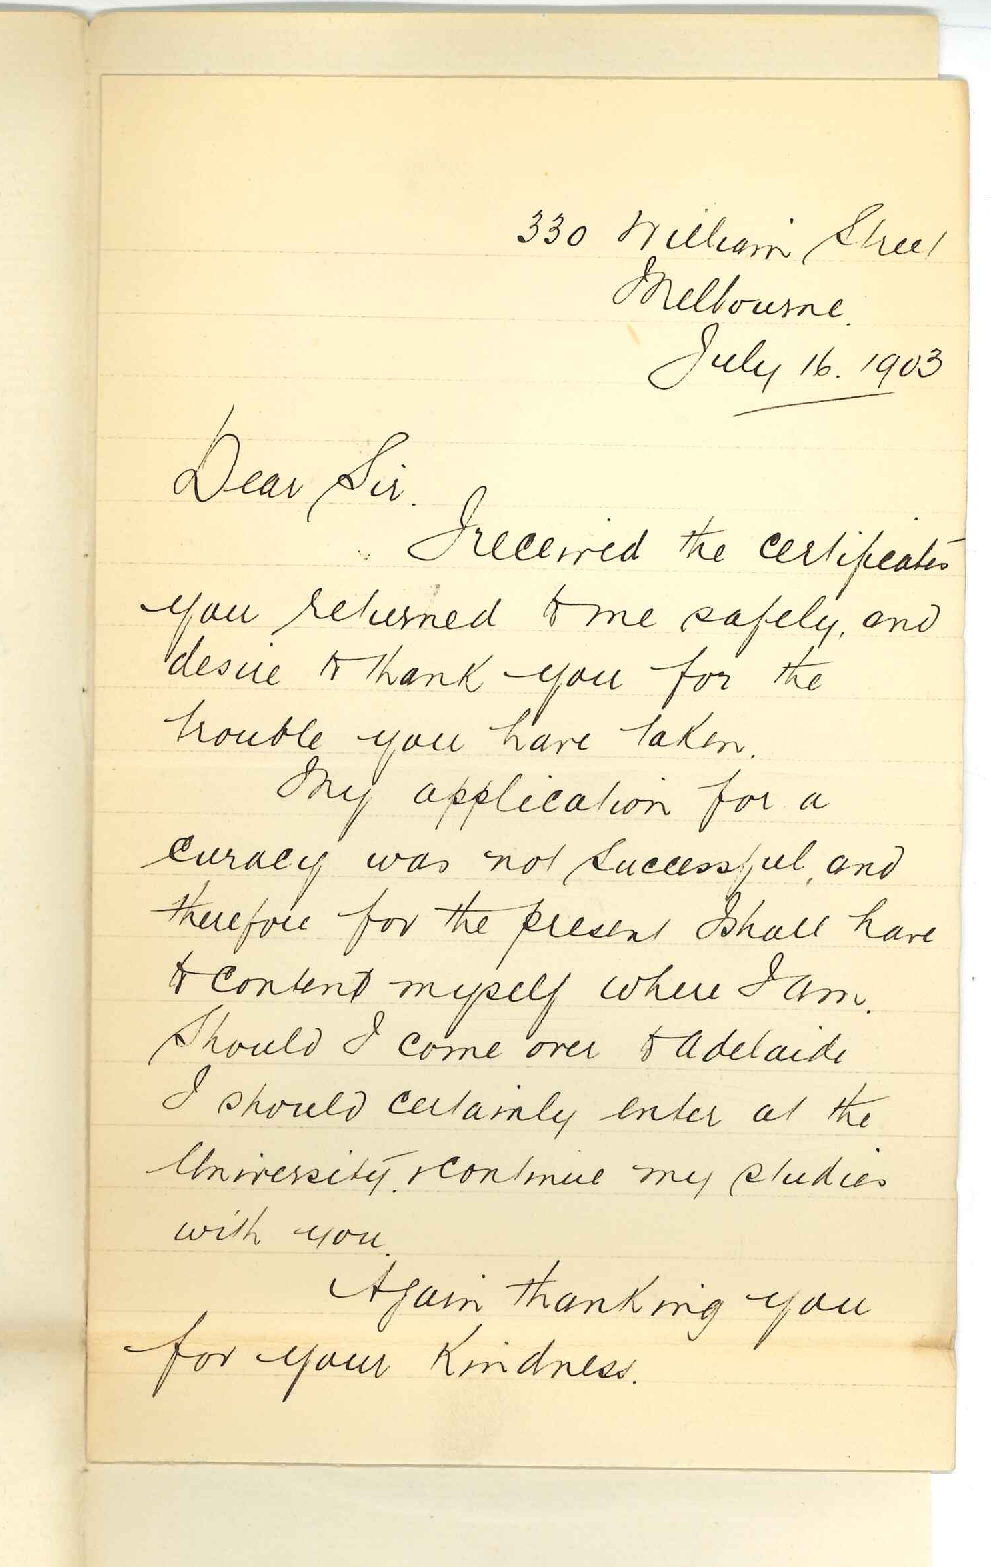 330 William Street
Melbourne.
July 16. 1903
Dear Sir.
I received the certificates
you returned to me safely, and
desire to thank you for the
trouble you have taken.
My application for a
curacy was not successful, and
therefore for the present I shall have
to content myself where I am.
Should I come over to Adelaide
I should certainly enter at the
University, & continue my studies
with you.
Again thanking you
for your kindness.